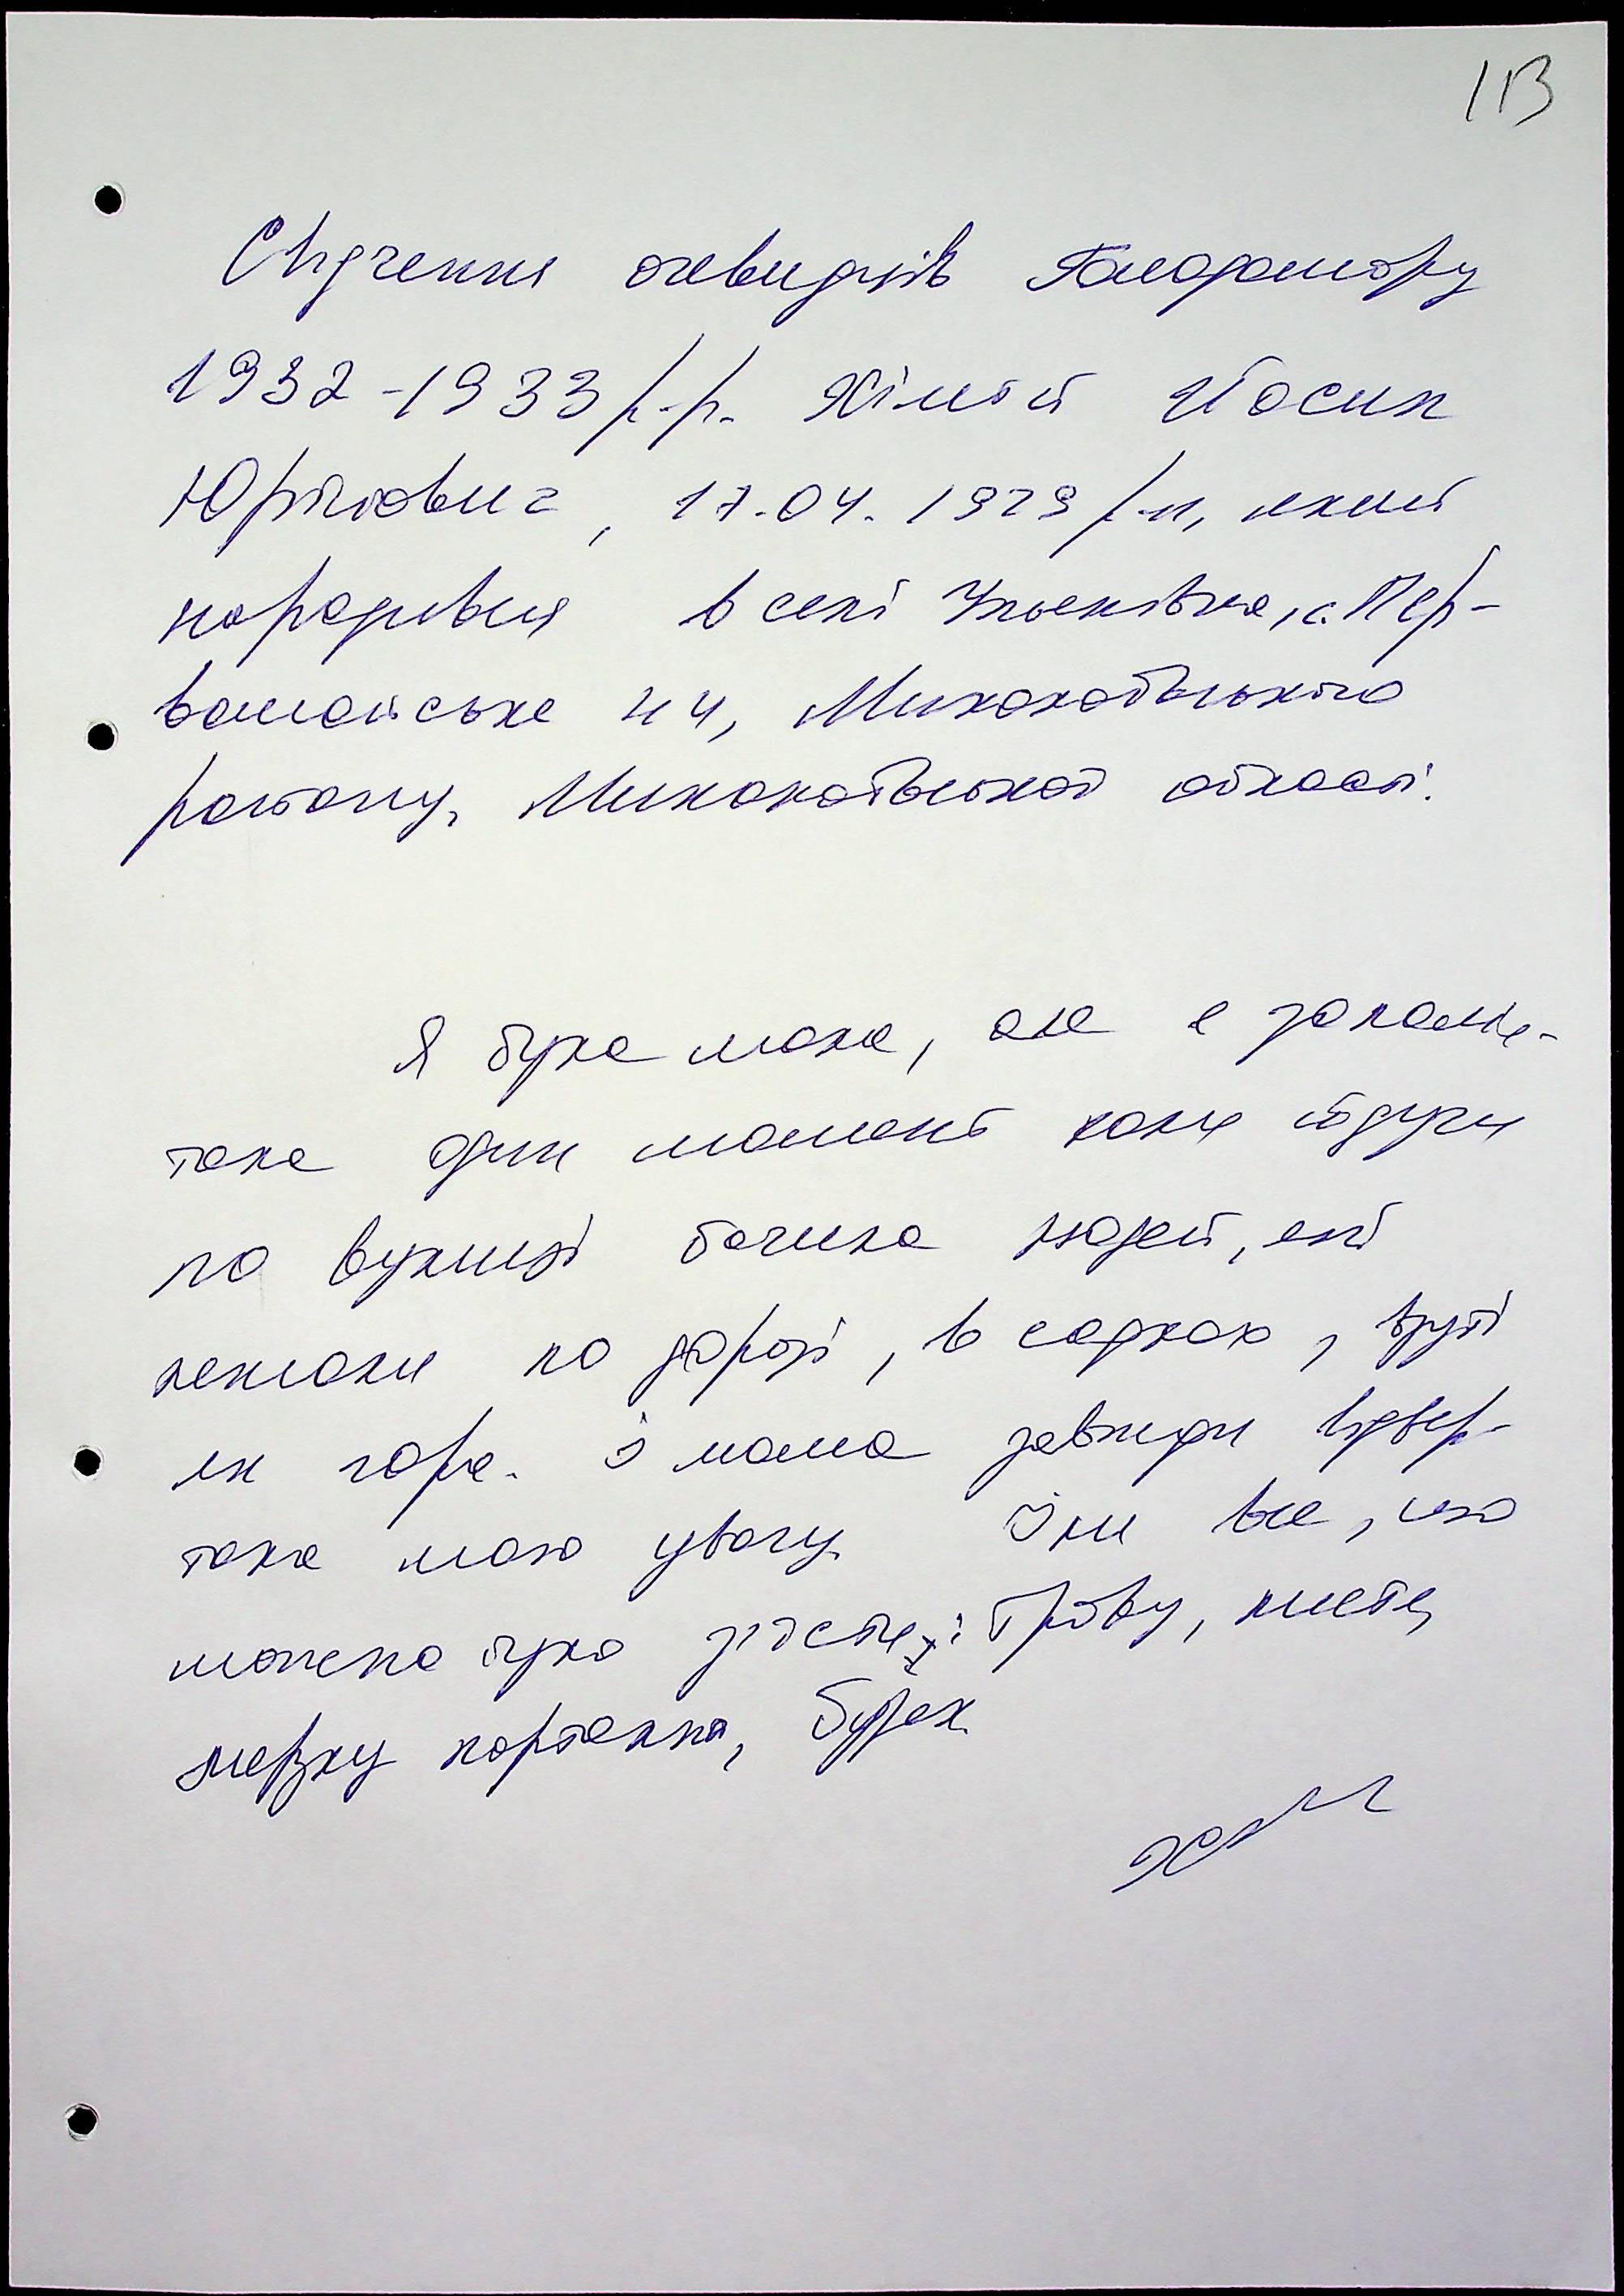 113
Свідчення очевидців Голодомору
1932-1933 р.р. Хімой Йосип
Юрійович, 17.04.1929 р.н, який
народився в селі Ульянівка, с. Пер-
вомайське 44, Миколаївського
району, Миколаївської області.
Я була мала, але я запамя-
тала один момент коли йдучи
по вулиці бачила людей, які
лежали по дорозі, в садках,
як гора. І мама завжди відвер-
тала мою увагу. Їли все, що
можна було зʼїсти: траву, листя,
мерзлу картоплю, буряк